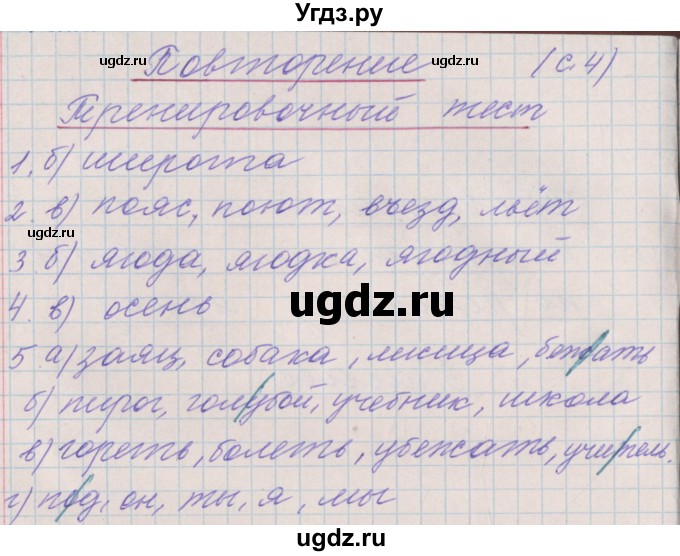 Угдз.ру
Повторение (с. 4)
Тренировочный тест
1. б) широта
2. в) пояс, поют, въезд, льёт
3. б) ягода, ягодка, ягодный
4. в) осень
5. а) заяц, собака, лисица, бежать
б) пирог, голубой, учебник, школа
в) гореть, болеть, убежать, учитель.
г) под, он, ты, я, мы
ugdz.ru
ugdz.ru
ugdz.ru
ugdz.ru
ugdz.ru
ugdz.ru
Угдз.ру